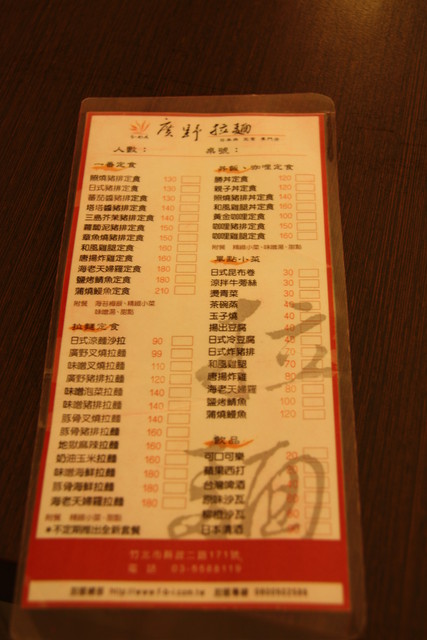 廣野拉麵
人數：　桌號：
一番定食
照燒豬排定食 130
日式豬排定食 130
蕃茄醬豬排定食 140
塔塔醬豬排定食 140
三島芥茉豬排定食 140
蘿蔔泥豬排定食 150
章魚燒豬排定食 150
和風雞腿定食 160
唐揚炸雞定食 160
海老天婦羅定食 180
鹽烤鯖魚定食 160
蒲燒鰻魚定食 210
拉麵定食
日式涼麵沙拉 90
廣野叉燒拉麵 99
味噌叉燒拉麵 110
廣野豬排拉麵 120
味噌泡菜拉麵 140
味噌豬排拉麵 140
豚骨叉燒拉麵 140
豚骨豬排拉麵 140
地獄麻辣拉麵 160
奶油玉米拉麵 160
味噌海鮮拉麵 180
豚骨海鮮拉麵 180
海老天婦羅拉麵 180
附餐　精緻小菜·甜點
●不定期推出全新套餐
丼飯、咖哩定食
勝丼定食 120
親子丼定食 120
照燒豬排丼定食 160
和風雞腿丼定食 160
黃金咖哩定食 100
咖哩豬排定食 150
咖哩雞腿定食 160
附餐　精緻小菜·味噌湯·甜點
單點小菜
日式昆布卷 30
涼拌牛蒡絲 30
燙青菜 30
茶碗蒸
玉子燒 40
揚出豆腐
日式冷豆腐
日式炸豬排
和風雞腿
唐揚炸雞
海老天婦羅
鹽烤鯖魚 100
蒲燒鰻魚 120
飲品
可口可樂
蘋果西打
台灣啤酒
原味沙瓦
柳橙沙瓦
日本清酒
竹北市縣政二路171號
電話